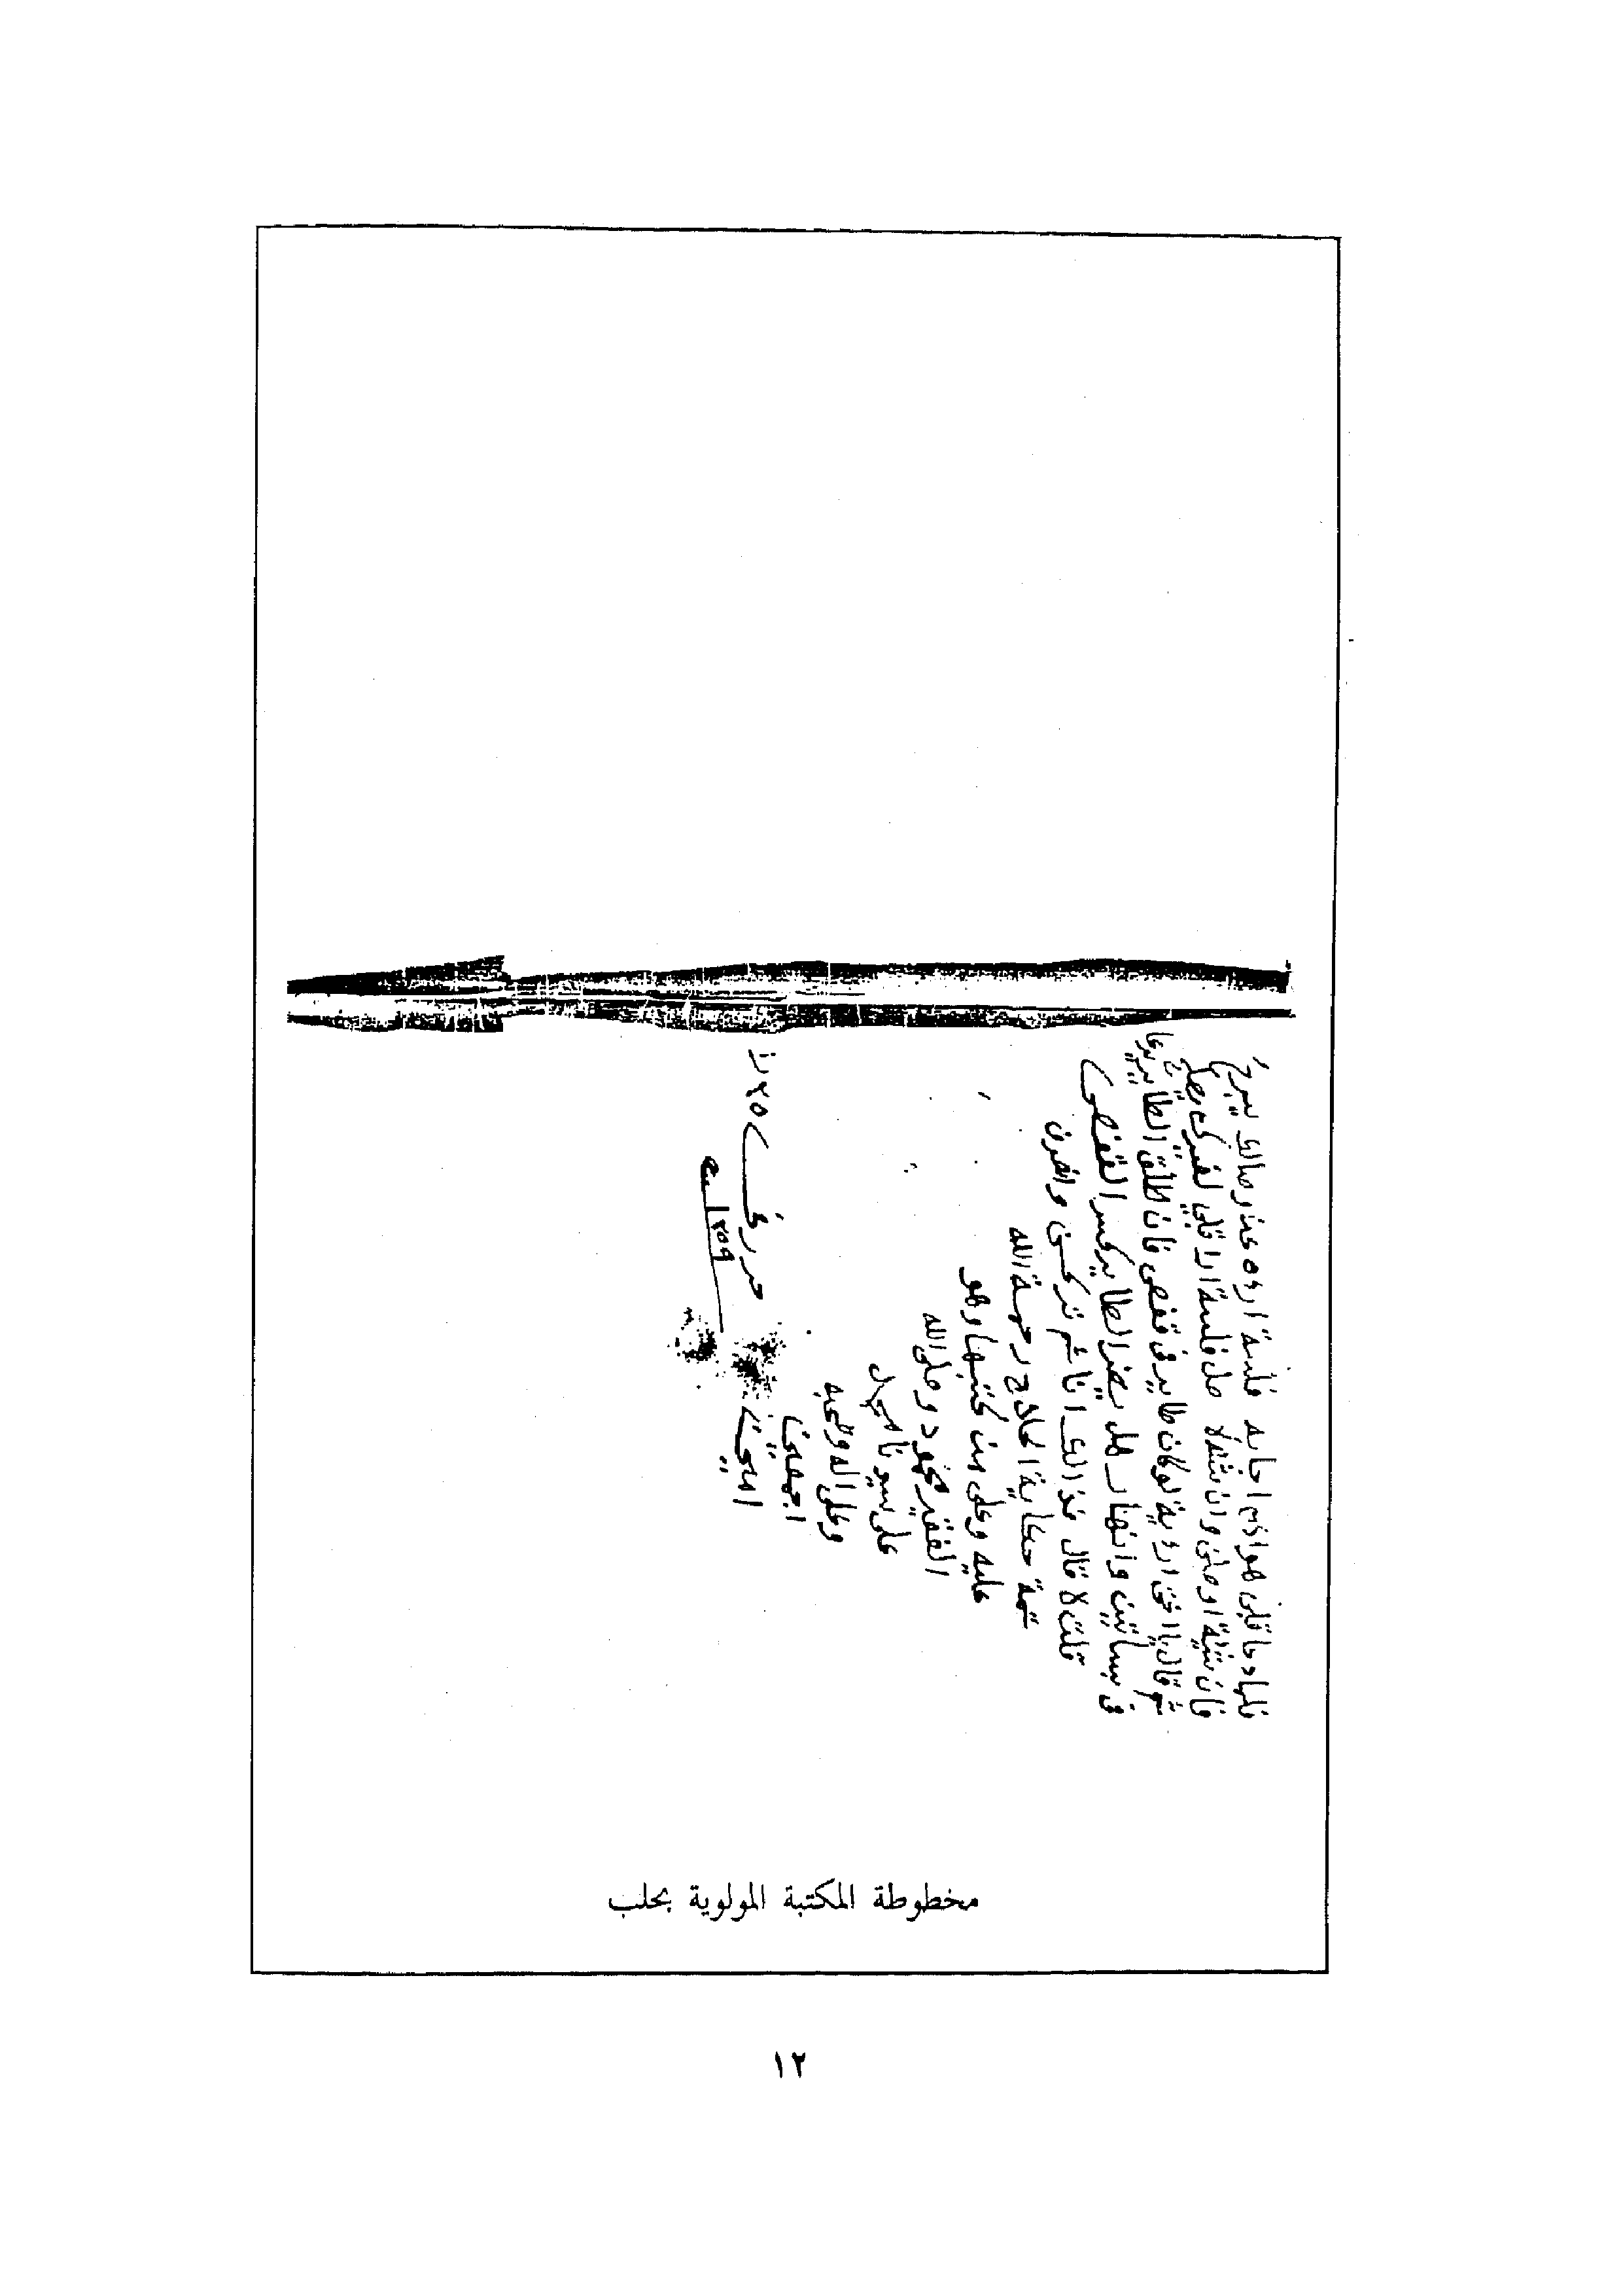 فلما دعا قلبي هواكم اجابه فلبية ارده عذار صالك يبرح
فان شئت اوصلني وان شئت لا صل فلست ارا قلبي لغيرك يصلح
ثم قال يا اخي ارءية لوكان طاير في قفص فان طلق الطاير يرعا
في بساتين وانهار هل يضر الطاير كسر القفص
قلت لا قال فذالك انا ثم تركني وانصرف
تمة حكاية الحلاج رحمة الله
عليه وعلى من كتبها وهو
الفقير محمود وصلى الله
على سيدنا محمد
وعلى اله وصحبه
اجمعين
امين
حرر في ٢٥
١٢٥٩ سنه
مخطوطة المكتبة المولوية بحلب
١٢